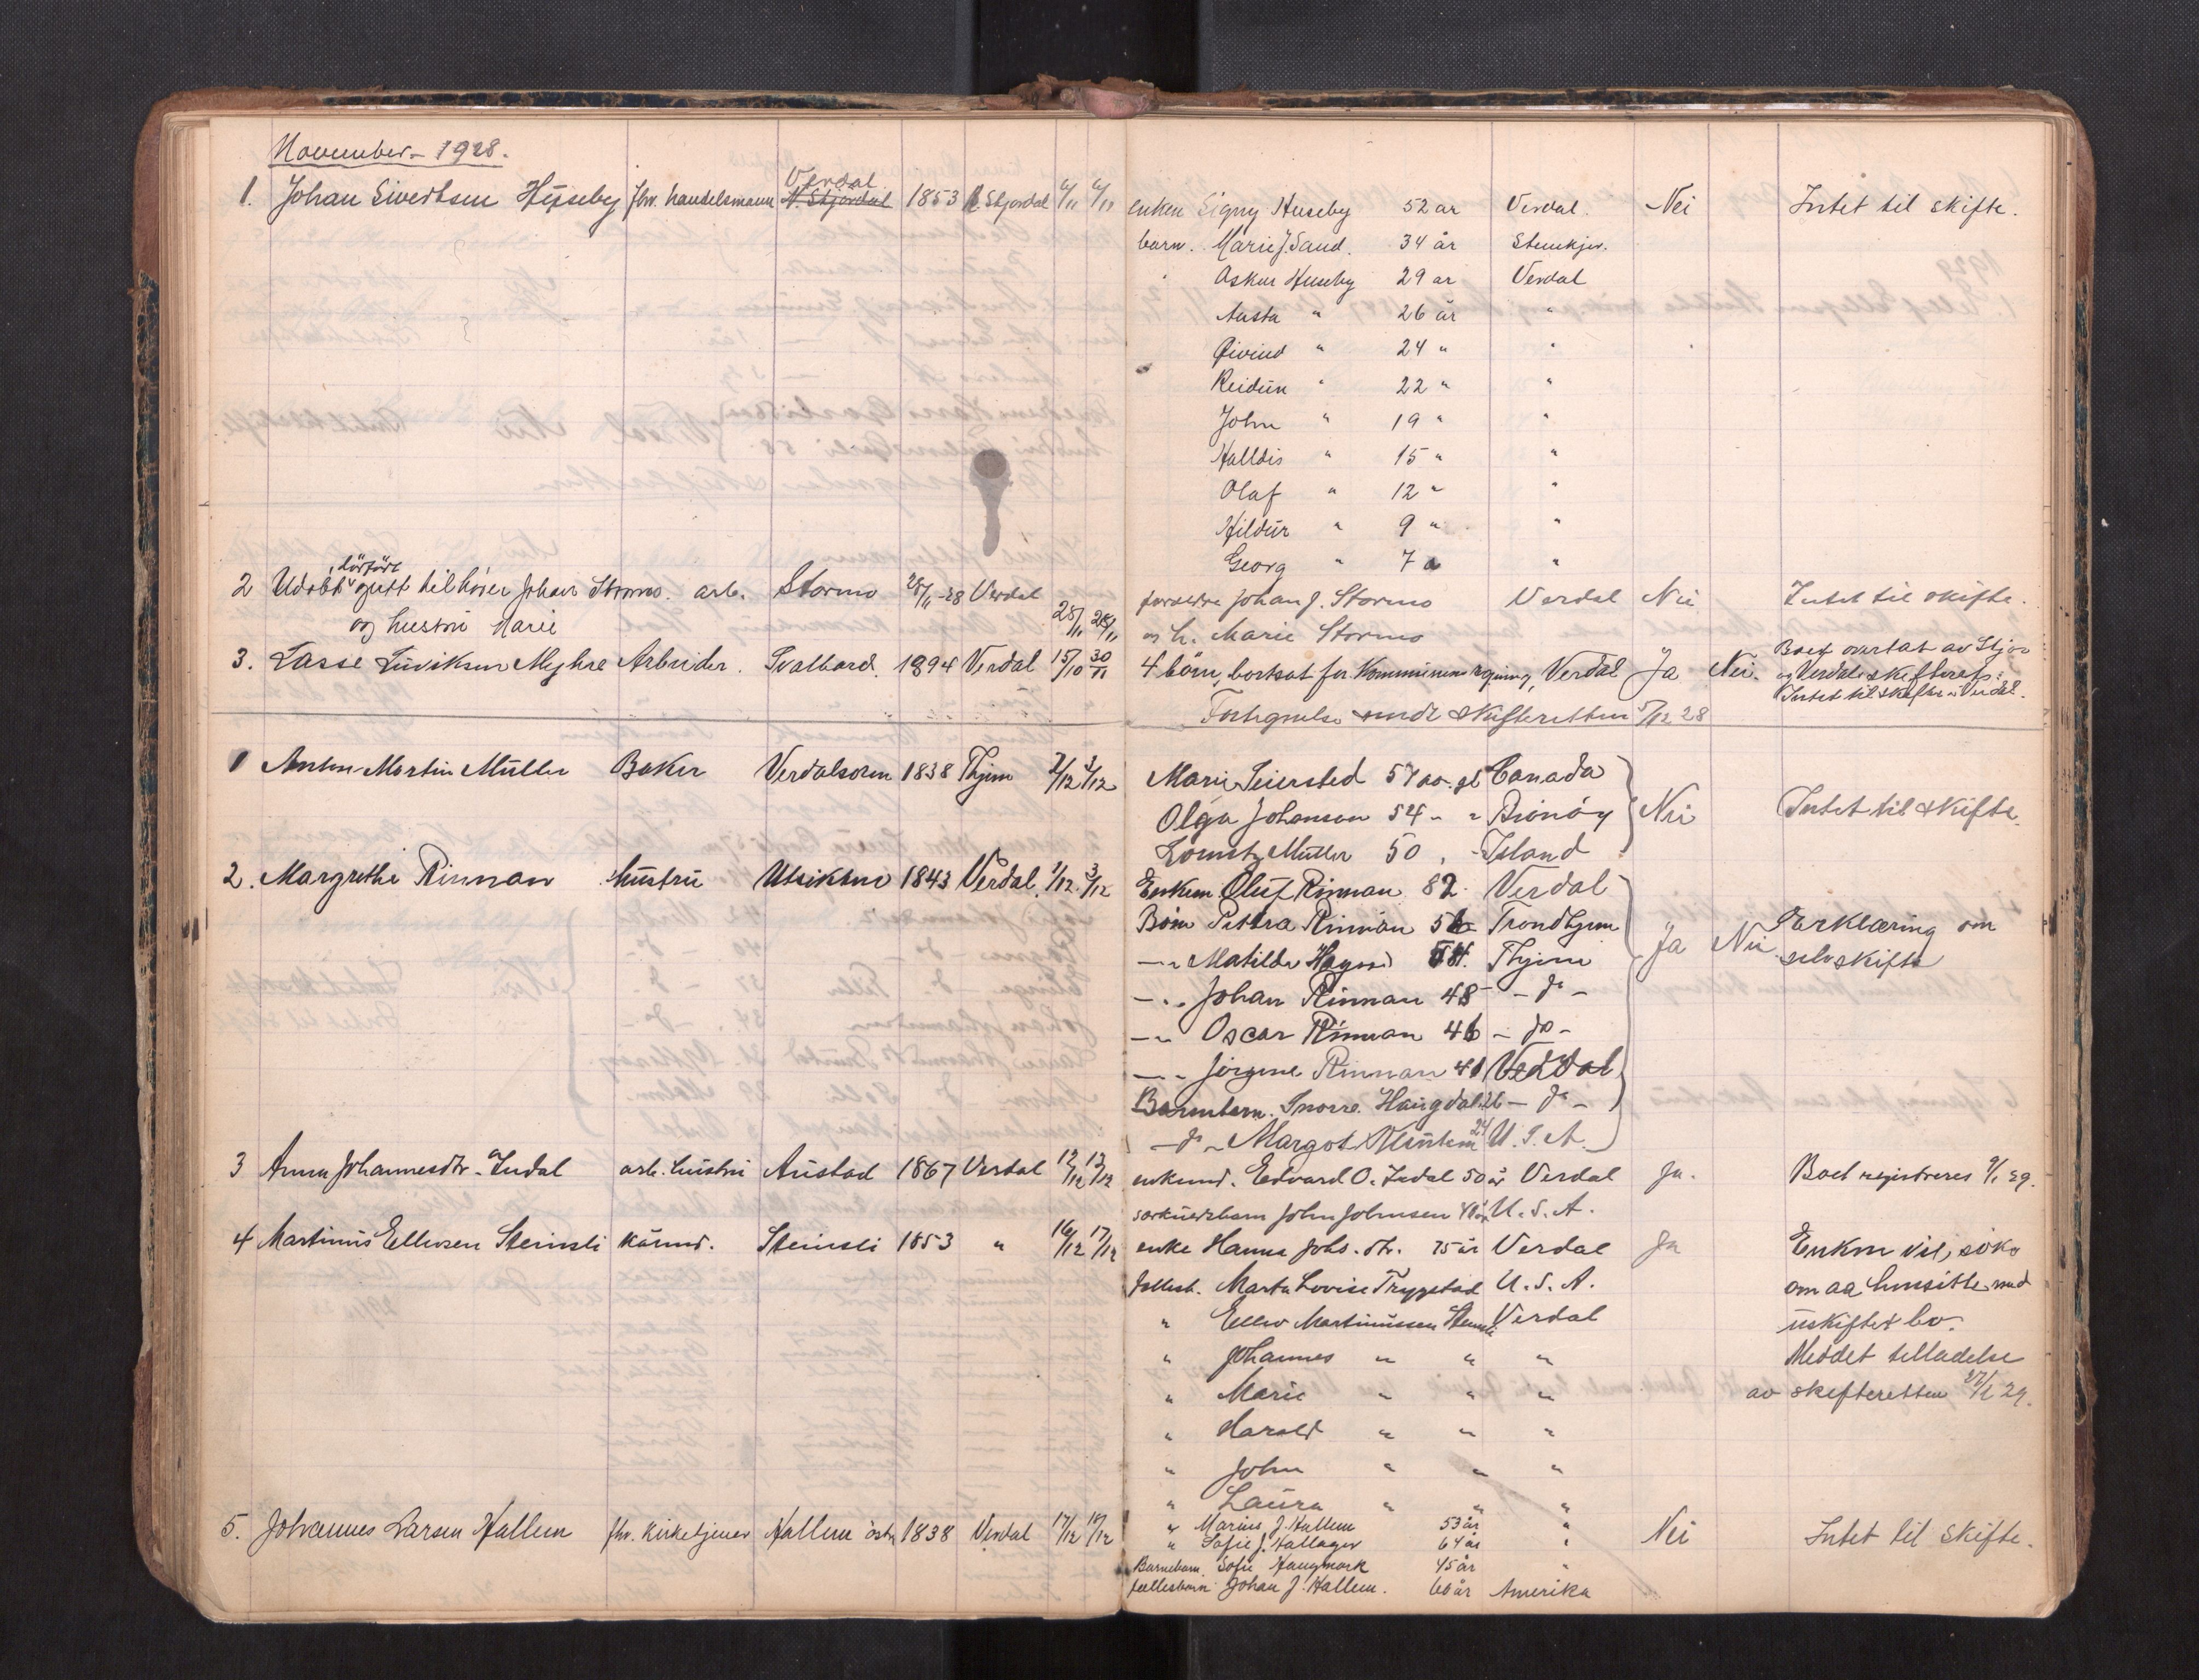 November - 1928.
1. Johan Sivertsen Hüseby fhv. handelsmann Verdal N. Stjørdal 1853 N Stjørdal 6/11 6/11 enken Signy Huseby 52 ar Verdal. Nei Intet til skifte.
barn. Marie J. Sand. 34 år Stenkjer.
" Oskar Huseby 29 ar Verdal
Aasta " 26 år "
Øivind " 24 " "
Reidün " 22 " "
John " 19 " "
Halldis " 15 " "
Olaf " 12 " "
Hildür " 9 " "
Georg " 7 " "
2 Udöbt gutt tilhører Johan Stormo. arb. Stormo 28/11-28 Verdal 28/11 28/11 foreldre Johan J. Stormo Verdal Nei Intet til skifte.
og hustru Marie og h. Marie Stormo
3. Lasse Myhre Arbeider. Svalbard. 1894 Verdal 15/10 30/11 4 børn, bortsat for Kommunens regning, Verdal Ja Nei. Boet overtat av Stjør
og Verdals skifteret.
Intet til skifte i Verdal.
Fortegnelse sendt skifteretten 5/12 28
1 Anton Martin Müller Baker Verdalsøren 1838 Thjem 2/12 3/12 Marie Seiersted 57 aar gl Canada
Olga Johanson 54 " " Brønøy Nei Intet til skifte.
Lorentz Müller 50 " " Island
2. Margrethe Rinnan hustru Utsikten 1843 Verdal. 1/12 3/12 Enkem Oluf Rinnan 82. Verdal
Børn Pettra Rinnan 56 Trondhjem
—"— Matilde 54. Thjem Ja Nei Erklæring om
selvskifte
—"— Johan Rinnan 48 - do -
—"— Oscar Rinnan 46 - do -
—"— Jörgine Rinnan 41 Verdal
Barnebarn. Snorre Haugdal 26 - do -
- do - Margot 24 U. S. A.
3 Anna Johannesdtr. Indal arb. hustru Aüstad 1867 Verdal 12/12 13/12 enkemd. Edvard O. Indal 50 år Verdal Ja. Boet registreres 9/1 29.
særkuldsbarn John Johnsen 40 år U. S. A.
4 Martinüs Ellevsen Steinsli kårmd. Steinsli 1853 " 16/12 17/12 enke Hanna Johs. dtr. 75 år Verdal Ja Enken vil søke
fellesb. Marta Lovise Trygstad U. S. A. om aa hensitte med
" Ellev Martinüssen Steinsli Verdal üskiftet bo.
" Johannes " " " Meddelt tilladelse
" Marie " " " av skifteretten 27/2 29.
" Harald " " "
" John " " "
" Laüra " " "
5. Johannes Larsen Hallem fhv. kirketjener Hallem østre 1838 Verdal 17/12 18/12 " Marius J. Hallem 53 år " Nei Intet til skifte.
" Sofie J. Hallager 64 år "
Barnebarn. Sofie Haugmark 45 år "
fellesbarn Johan J. Hallem. 60 år Amerika